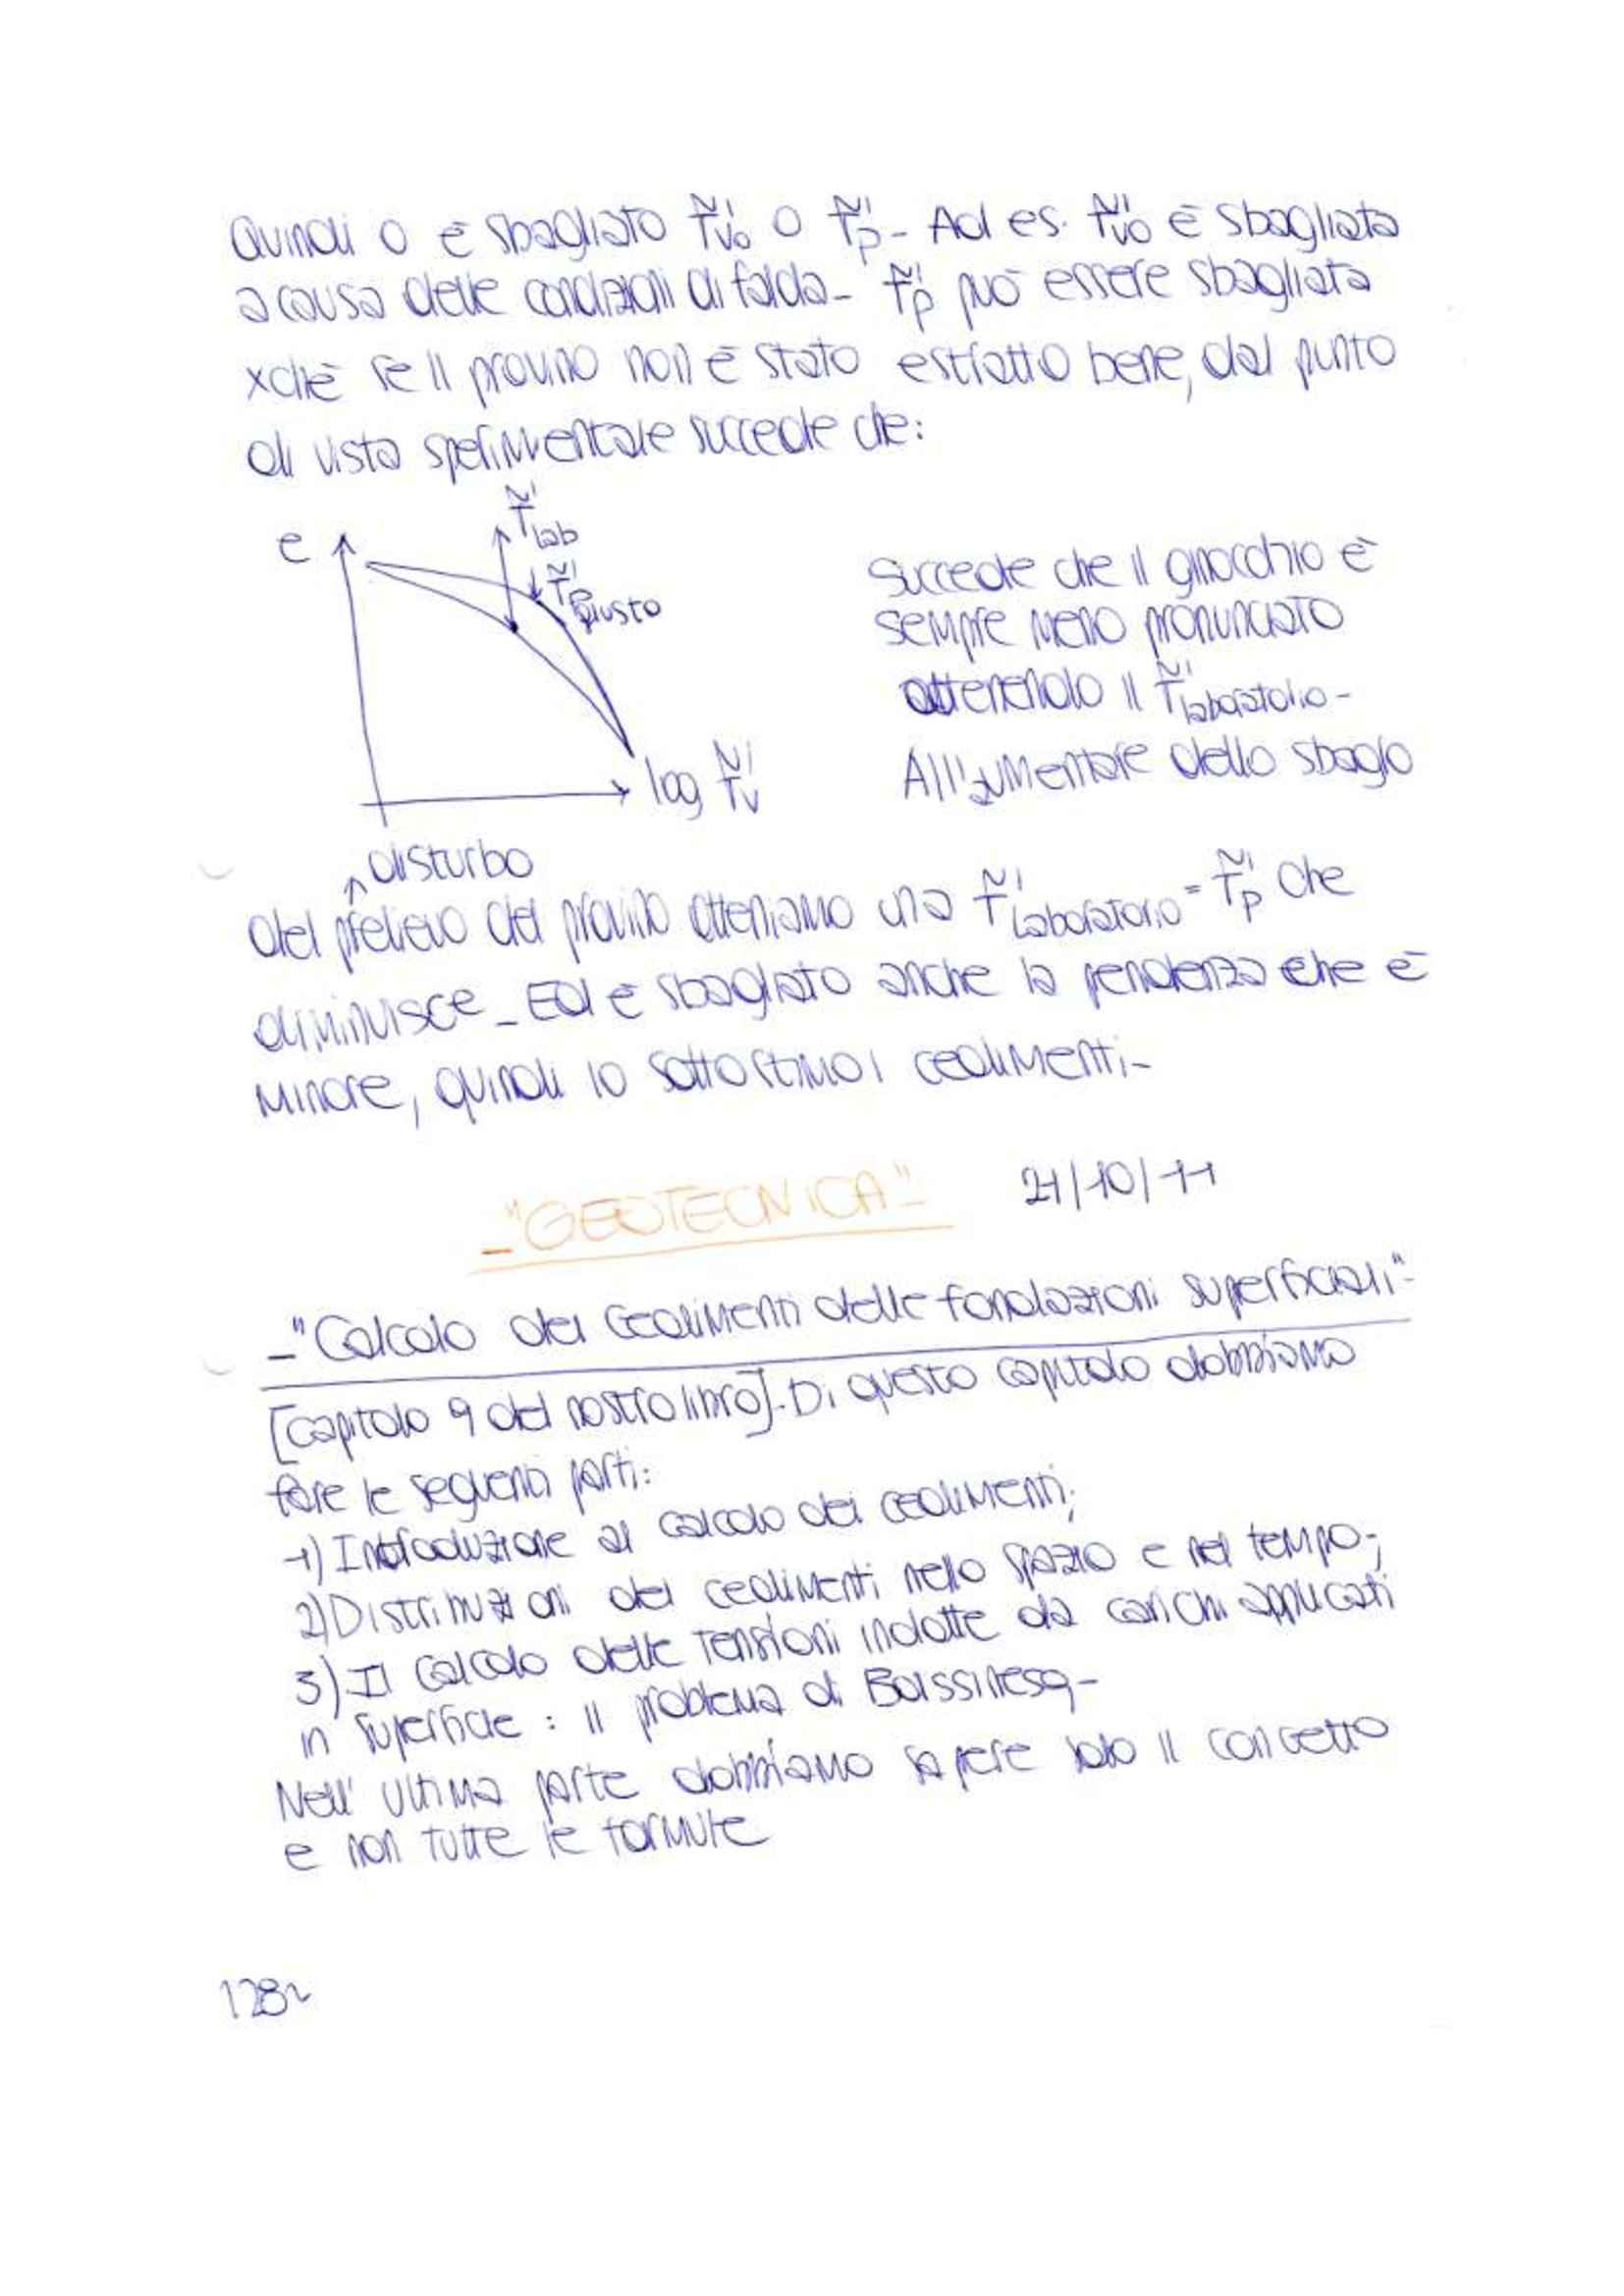 Quindi o è sbagliato σ̃'vo o σ̃'p - Ad es. σ̃'vo è sbagliata
a causa delle condizioni di falda - σ̃'p può essere sbagliata
xchè se il provino non è stato estratto bene, dal punto
di vista sperimentale succede che:
σ̃'lab
e
σ̃'p giusto
log σ̃'v
Succede che il ginocchio è
sempre meno pronunciato
ottenendo il σ̃'laboratorio -
All'aumentare dello sbaglio
disturbo
del prelievo del provino otteniamo una σ̃'laboratorio = σ̃'p che
diminuisce - Ed è sbagliato anche la pendenza che è
minore, quindi io sottostimo i cedimenti -
- "GEOTECNICA" -
21/10/11
- "Calcolo dei cedimenti delle fondazioni superficiali" -
[capitolo 9 del nostro libro]. Di questo capitolo dobbiamo
fare le seguenti parti:
1) Introduzione al calcolo dei cedimenti;
2) Distribuzioni dei cedimenti nello spazio e nel tempo;
3) Il calcolo delle tensioni indotte da carichi applicati
in superficie : il problema di Boissinesq -
Nell' ultima parte dobbiamo sapere solo il concetto
e non tutte le formule
128